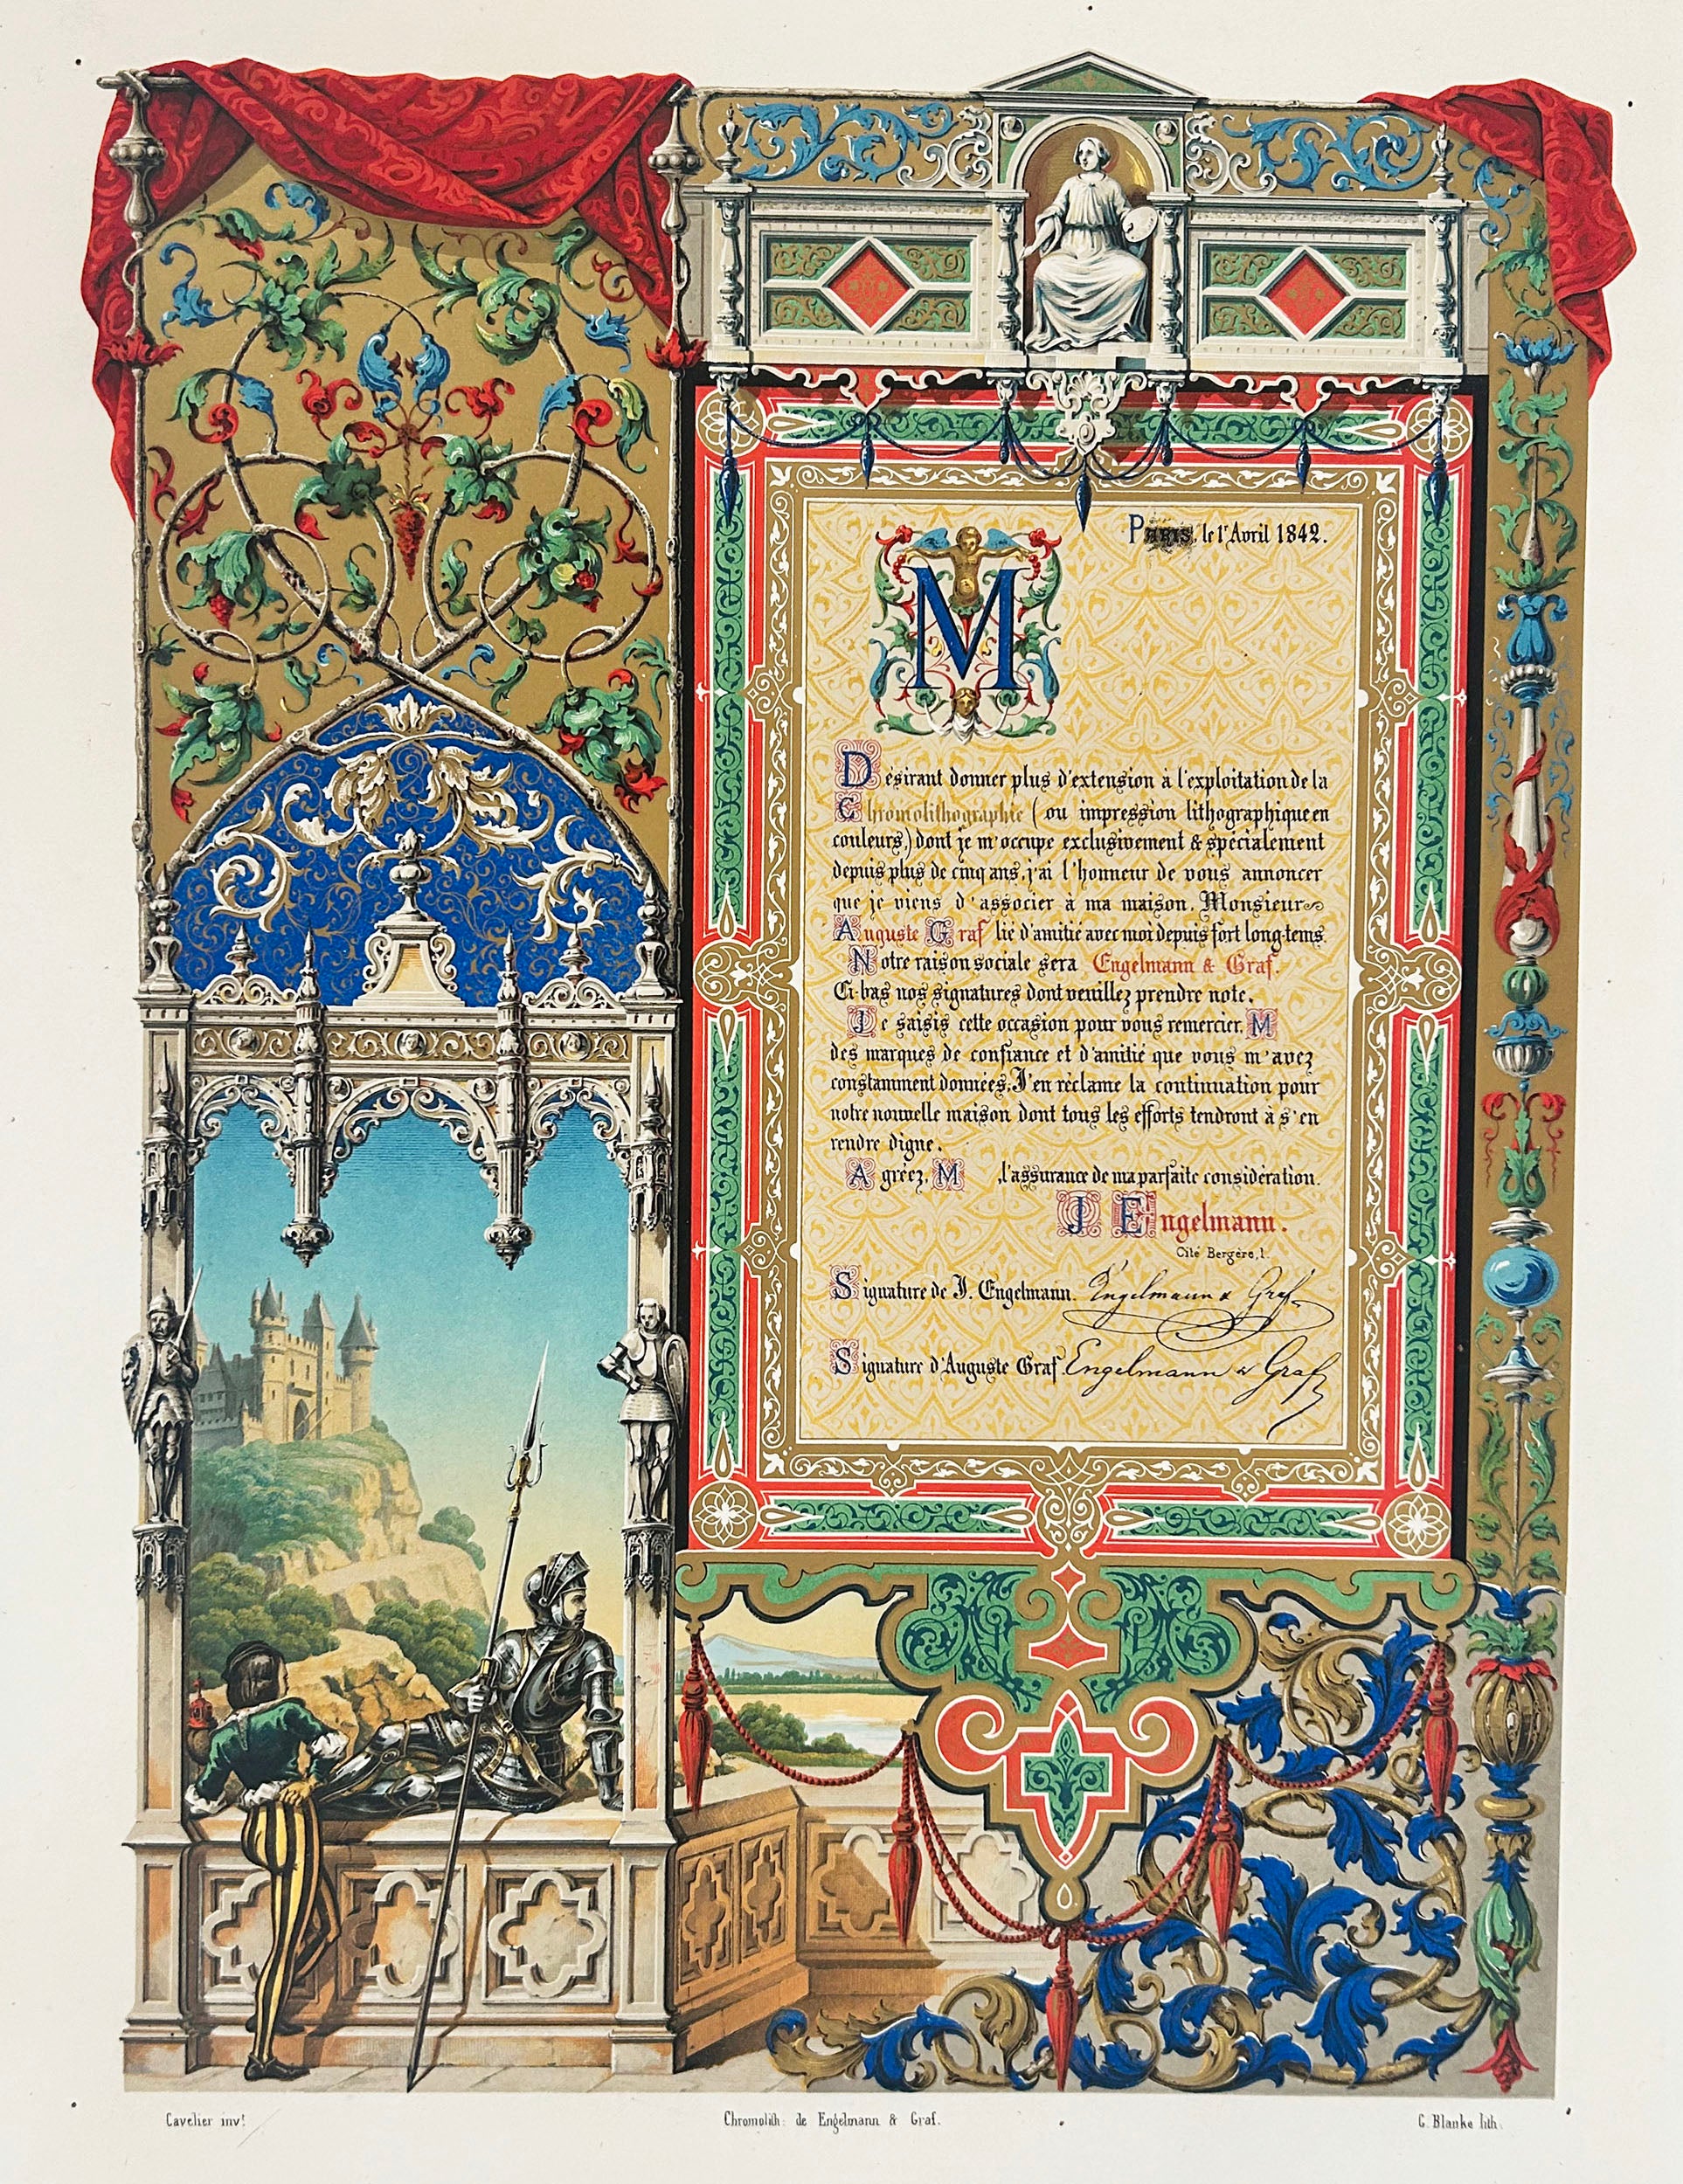 Paris, le 1r Avril 1842.
M
Désirant donner plus d'extension à l'exploitation de la
Chromolithographie (ou impression lithographique en
couleurs,) dont je m'occupe exclusivement & spécialement
depuis plus de cinq ans, j'ai l'honneur de vous annoncer
que je viens d'associer à ma maison, Monsieur
Auguste Graf lié d'amitié avec moi depuis fort long-tems.
Notre raison sociale sera Engelmann & Graf.
Ci-bas nos signatures dont veuillez prendre note.
Je saisis cette occasion pour vous remercier, M
des marques de confiance et d'amitié que vous m'avez
constamment données, J'en réclame la continuation pour
notre nouvelle maison dont tous les efforts tendront à s'en
rendre digne.
Agréez, M ,l'assurance de ma parfaite considération.
J Engelmann.
Cité Bergère, 1.
Signature de J. Engelmann. Engelmann & Graf
Signature d'Auguste Graf Engelmann & Graf
Cavelier invt
Chromolith: de Engelmann & Graf.
G. Blanke lith: